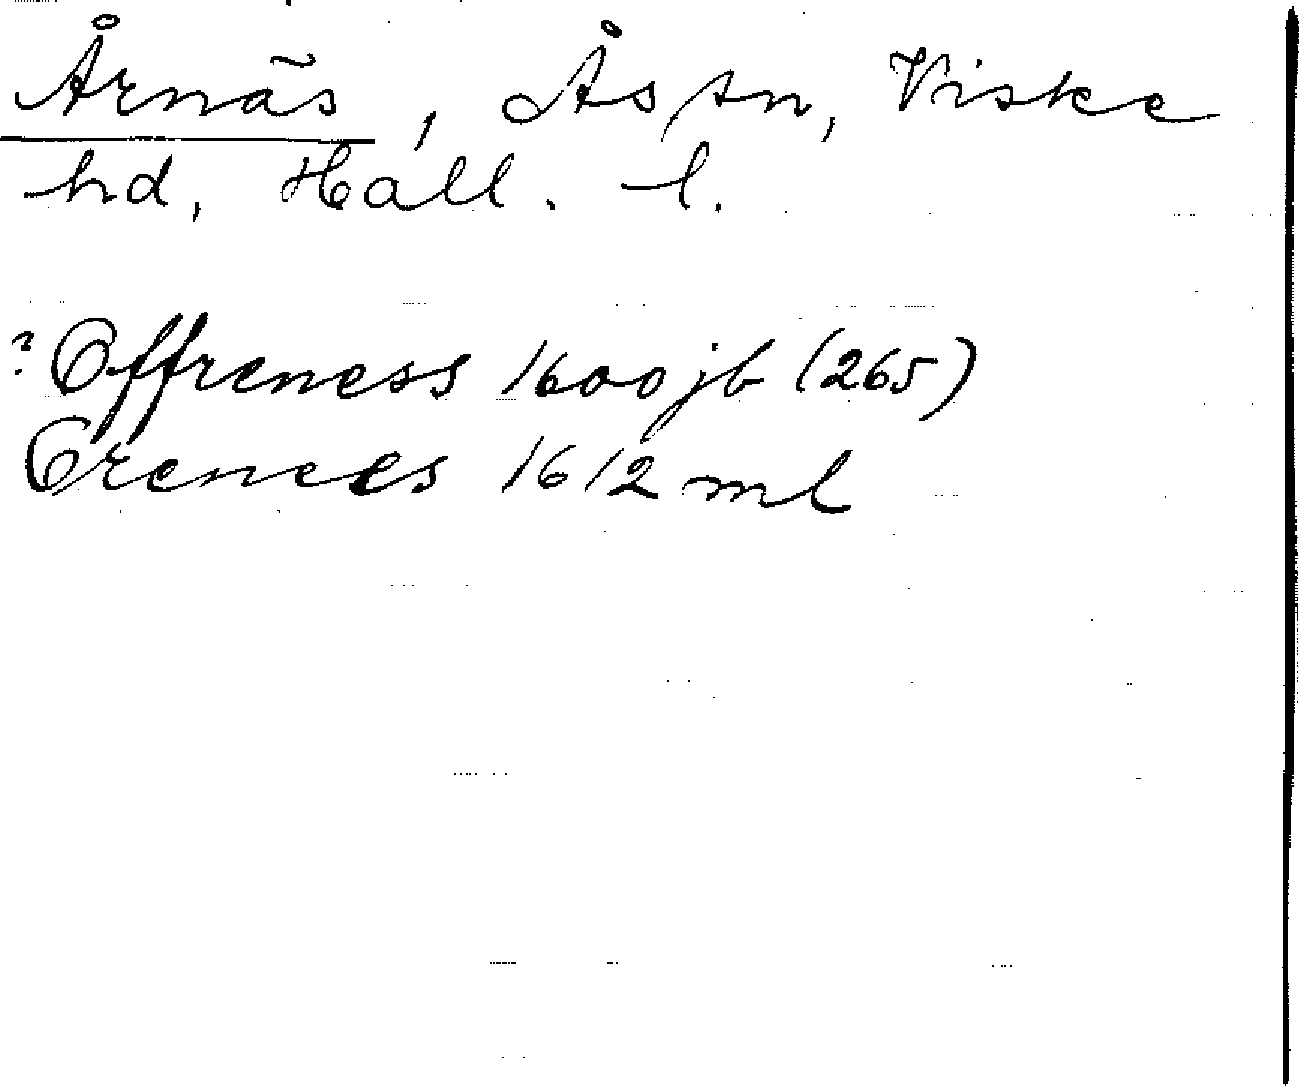 Årnäs, Ås sn, Viske
hd, Hall. l.
? Offreness 1600 jb (265)
Orenees 1612 ml